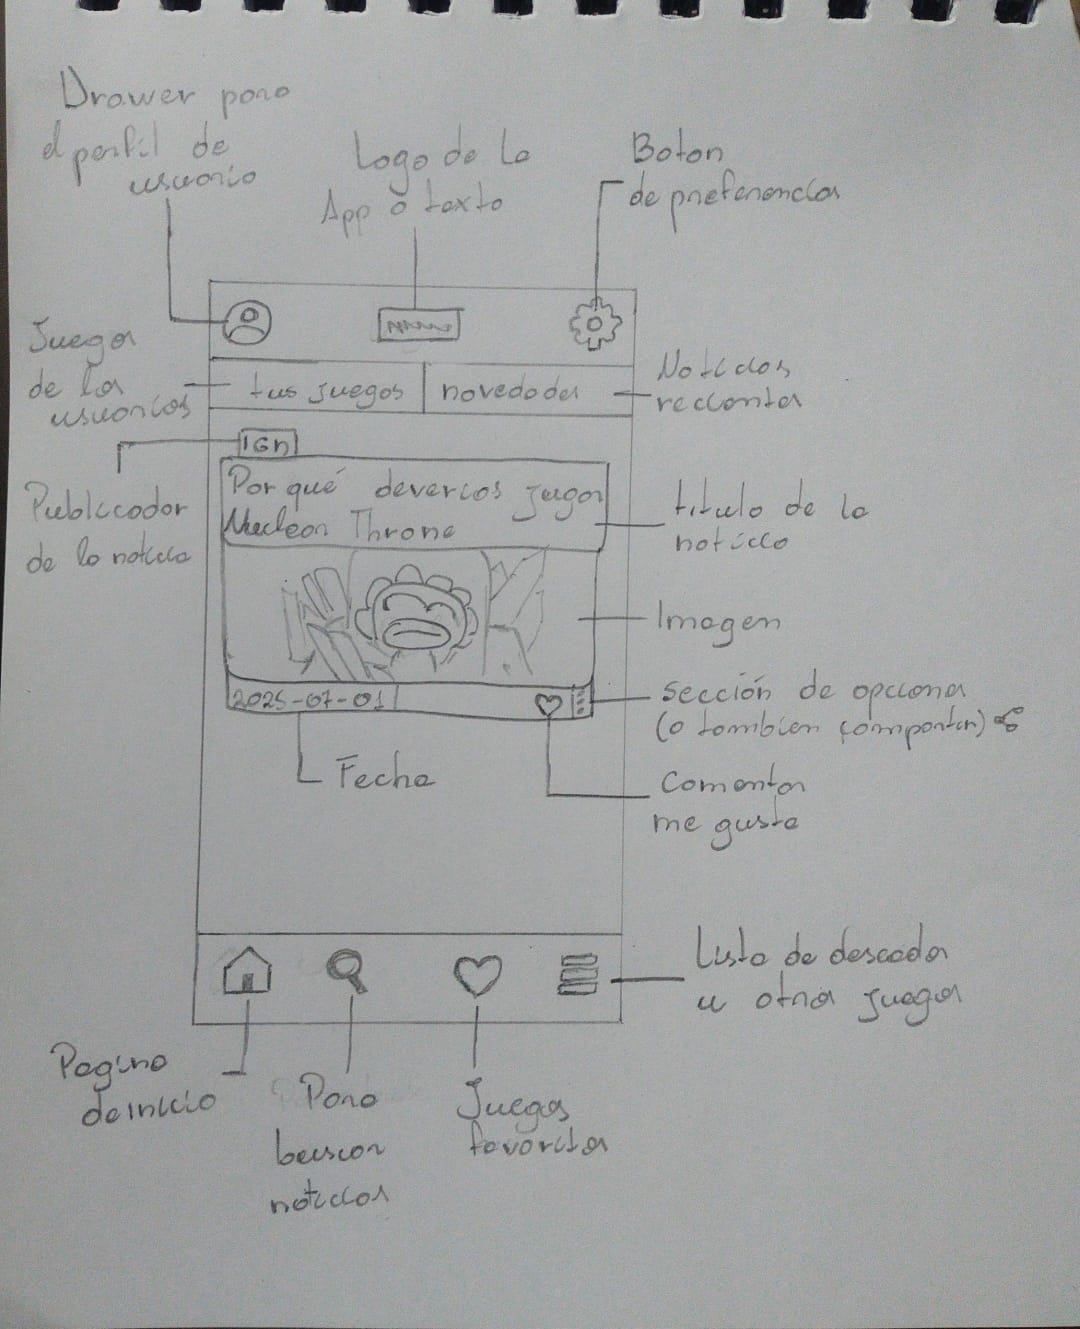 Drawer para
el perfil de
usuario
Logo de la
App o texto
Boton
de preferencias
Juegos
de los
usuarios
tus juegos
novedades
Noticias
recientes
IGN
Publicador
de la noticia
Por qué deverias jugar
Nuclear Throne
titulo de la
noticia
Imagen
2025-07-01
sección de opciones
(o tambien compartir)
Fecha
Comentar
me gusta
Lista de deseados
u otros juegos
Pagina
de inicio
Para
buscar
noticias
Juegos
favoritos